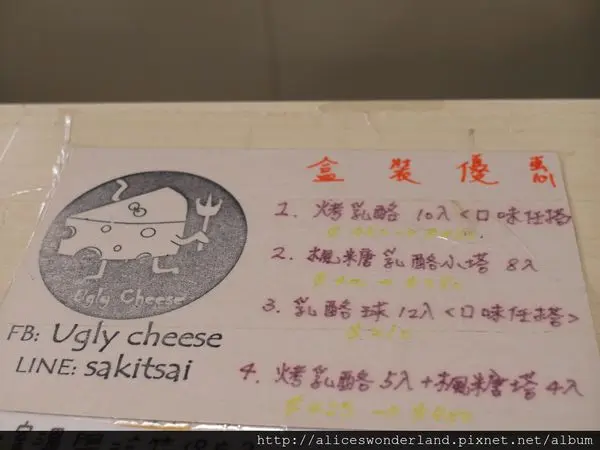 盒裝優惠
1. 烤乳酪 10入<口味任搭>
2. 楓糖乳酪小塔 8入
3. 乳酪球 12入<口味任搭>
4. 烤乳酪5入+楓糖塔4入
Ugly Cheese
FB: Ugly cheese
LINE: sakitsai
http://aliceswonderland.pixnet.net/album